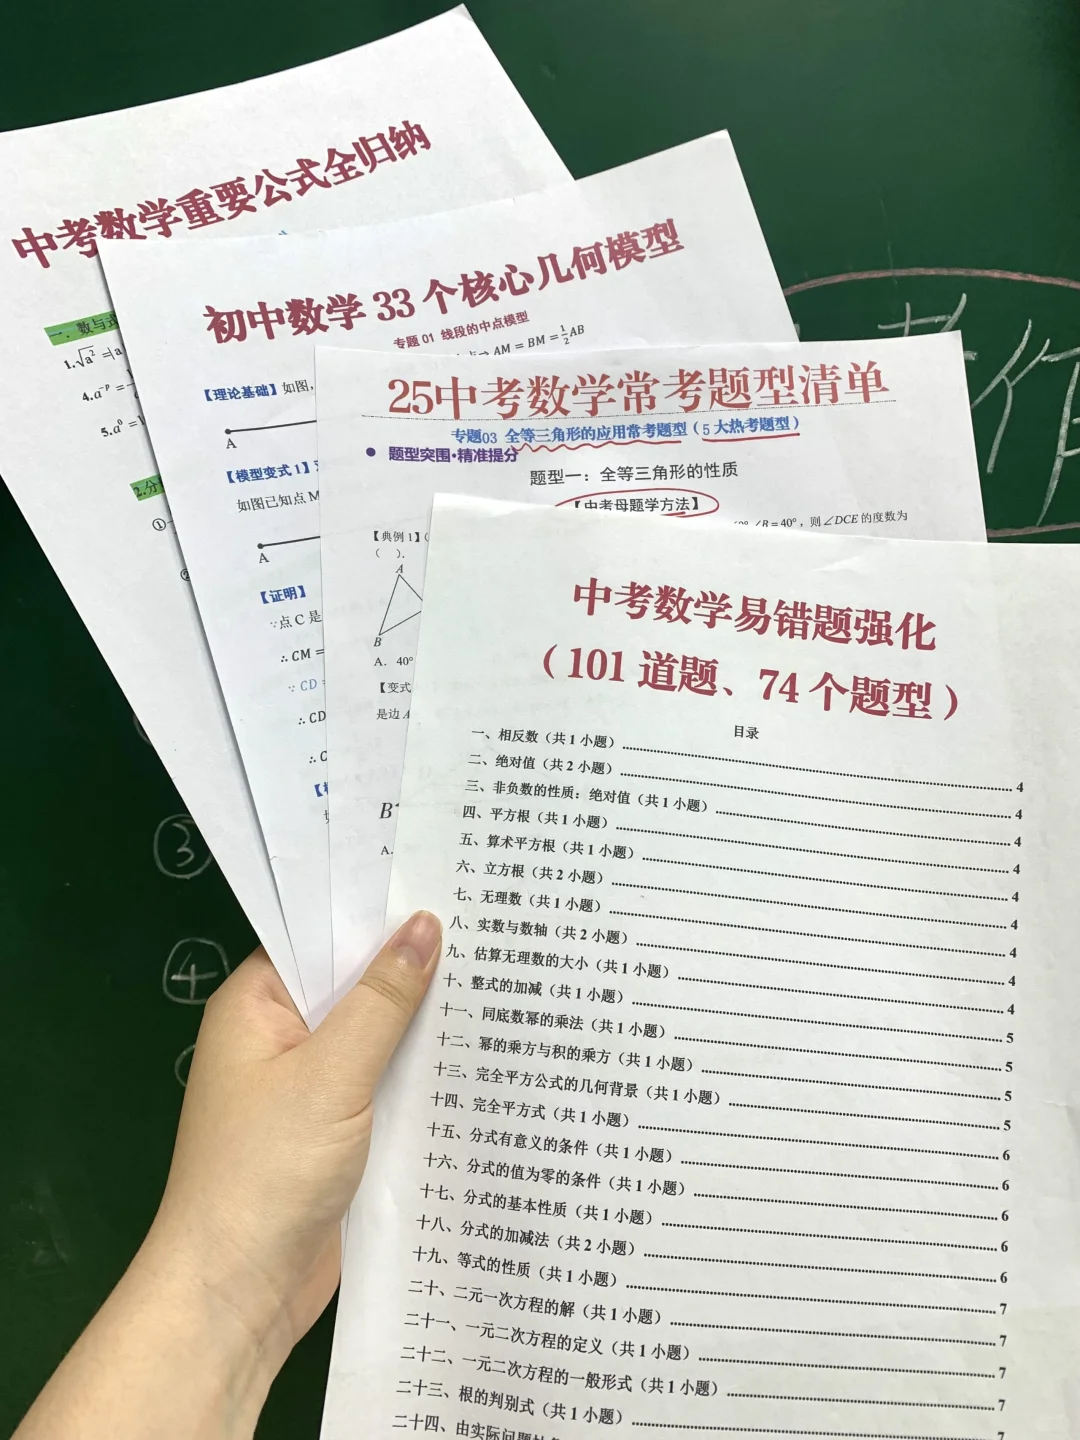 中考数学重要公式全归纳
一、数与式
1.√a² =|a
4.a⁻ᵖ =
5.a⁰ =
2.分
①
初中数学 33 个核心几何模型
专题 01 线段的中点模型
⇒ AM = BM = 1/2 AB
【理论基础】如图,
A
【模型变式 1】
如图已知点 M
A
【证明】
∵点 C 是
∴ CM =
∵ CD =
∴ CD
∴ C
25中考数学常考题型清单
专题03 全等三角形的应用常考题型（5 大热考题型）
● 题型突围·精准提分
题型一：全等三角形的性质
【中考母题学方法】
∠B = 40°，则 ∠DCE 的度数为
【典例 1】
（ ）.
A
B
A. 40°
【变式
是边 A
B
A.
中考数学易错题强化
（101 道题、74 个题型）
目录
一、相反数（共 1 小题） 4
二、绝对值（共 2 小题） 4
三、非负数的性质：绝对值（共 1 小题） 4
四、平方根（共 1 小题） 4
五、算术平方根（共 1 小题） 4
六、立方根（共 2 小题） 4
七、无理数（共 1 小题） 4
八、实数与数轴（共 2 小题） 4
九、估算无理数的大小（共 1 小题） 4
十、整式的加减（共 1 小题） 5
十一、同底数幂的乘法（共 1 小题） 5
十二、幂的乘方与积的乘方（共 1 小题） 5
十三、完全平方公式的几何背景（共 1 小题） 5
十四、完全平方式（共 1 小题） 6
十五、分式有意义的条件（共 1 小题） 6
十六、分式的值为零的条件（共 1 小题） 6
十七、分式的基本性质（共 1 小题） 6
十八、分式的加减法（共 2 小题） 6
十九、等式的性质（共 1 小题） 7
二十、二元一次方程的解（共 1 小题） 7
二十一、一元二次方程的定义（共 1 小题） 7
二十二、一元二次方程的一般形式（共 1 小题） 7
二十三、根的判别式（共 1 小题） 7
二十四、由实际问题
③
④